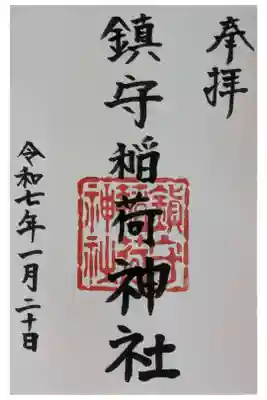 奉拝
鎮守稲荷神社
鎮守稲荷神社
令和七年一月二十日